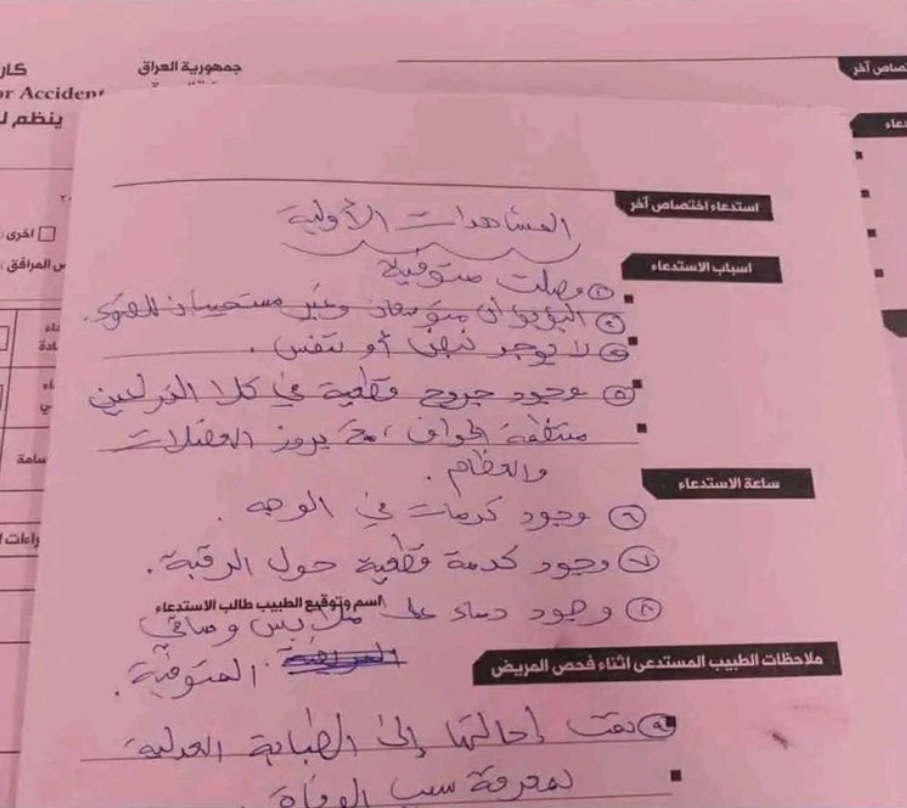 جمهورية العراق
or Accident
ينظم
اخرى
س المرافق
استدعاء اختصاص آخر
المشاهدات الأولية
اسباب الاستدعاء
وصلت متوفية
البؤبؤان متوسعان وغير مستجيبان للضوء.
لا يوجد نبض أو تنفس.
وجود جروح قطعية في كلا الذراعين
منتظمة الحواف، مع بروز العضلات
والعظام.
ساعة الاستدعاء
٦ وجود كدمات في الوجه.
٧ وجود كدمة قطعية حول الرقبة.
اسم وتوقيع الطبيب طالب الاستدعاء
٨ وجود دماء على ملابس وساقي
المتوفية.
ملاحظات الطبيب المستدعى اثناء فحص المريض
٩ تمت إحالتها إلى الطبابة العدلية
لمعرفة سبب الوفاة.